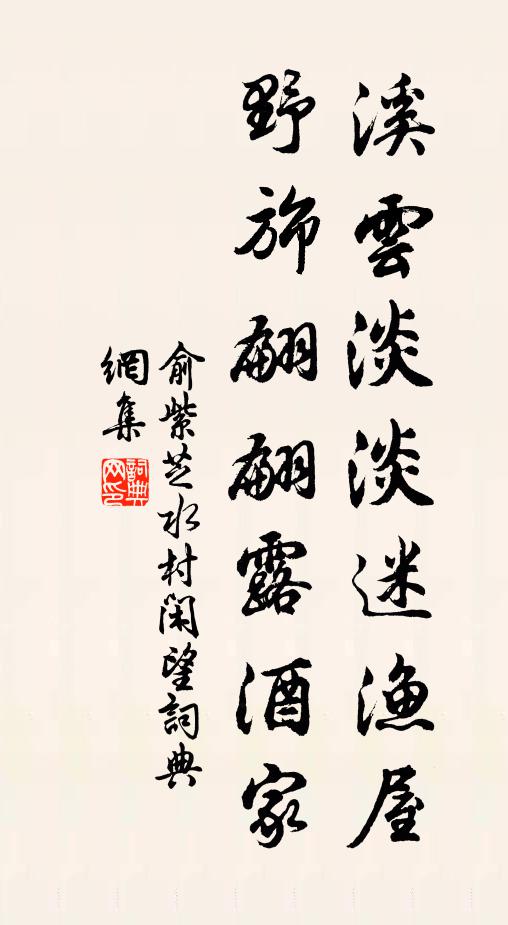 溪雲淡淡迷漁屋
野斾翩翩露酒家
俞紫芝水村閑望詞典
網集
詞典
网印